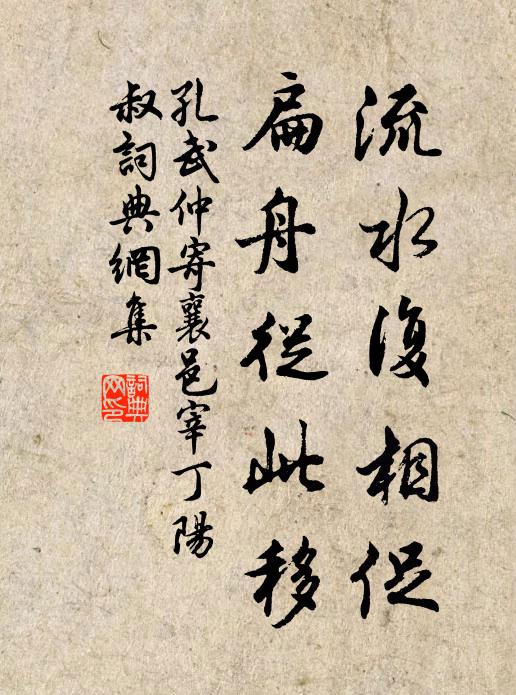 流水復相促
扁舟從此移
孔武仲寄襄邑宰丁陽
叔詞典網集
詞典
网印